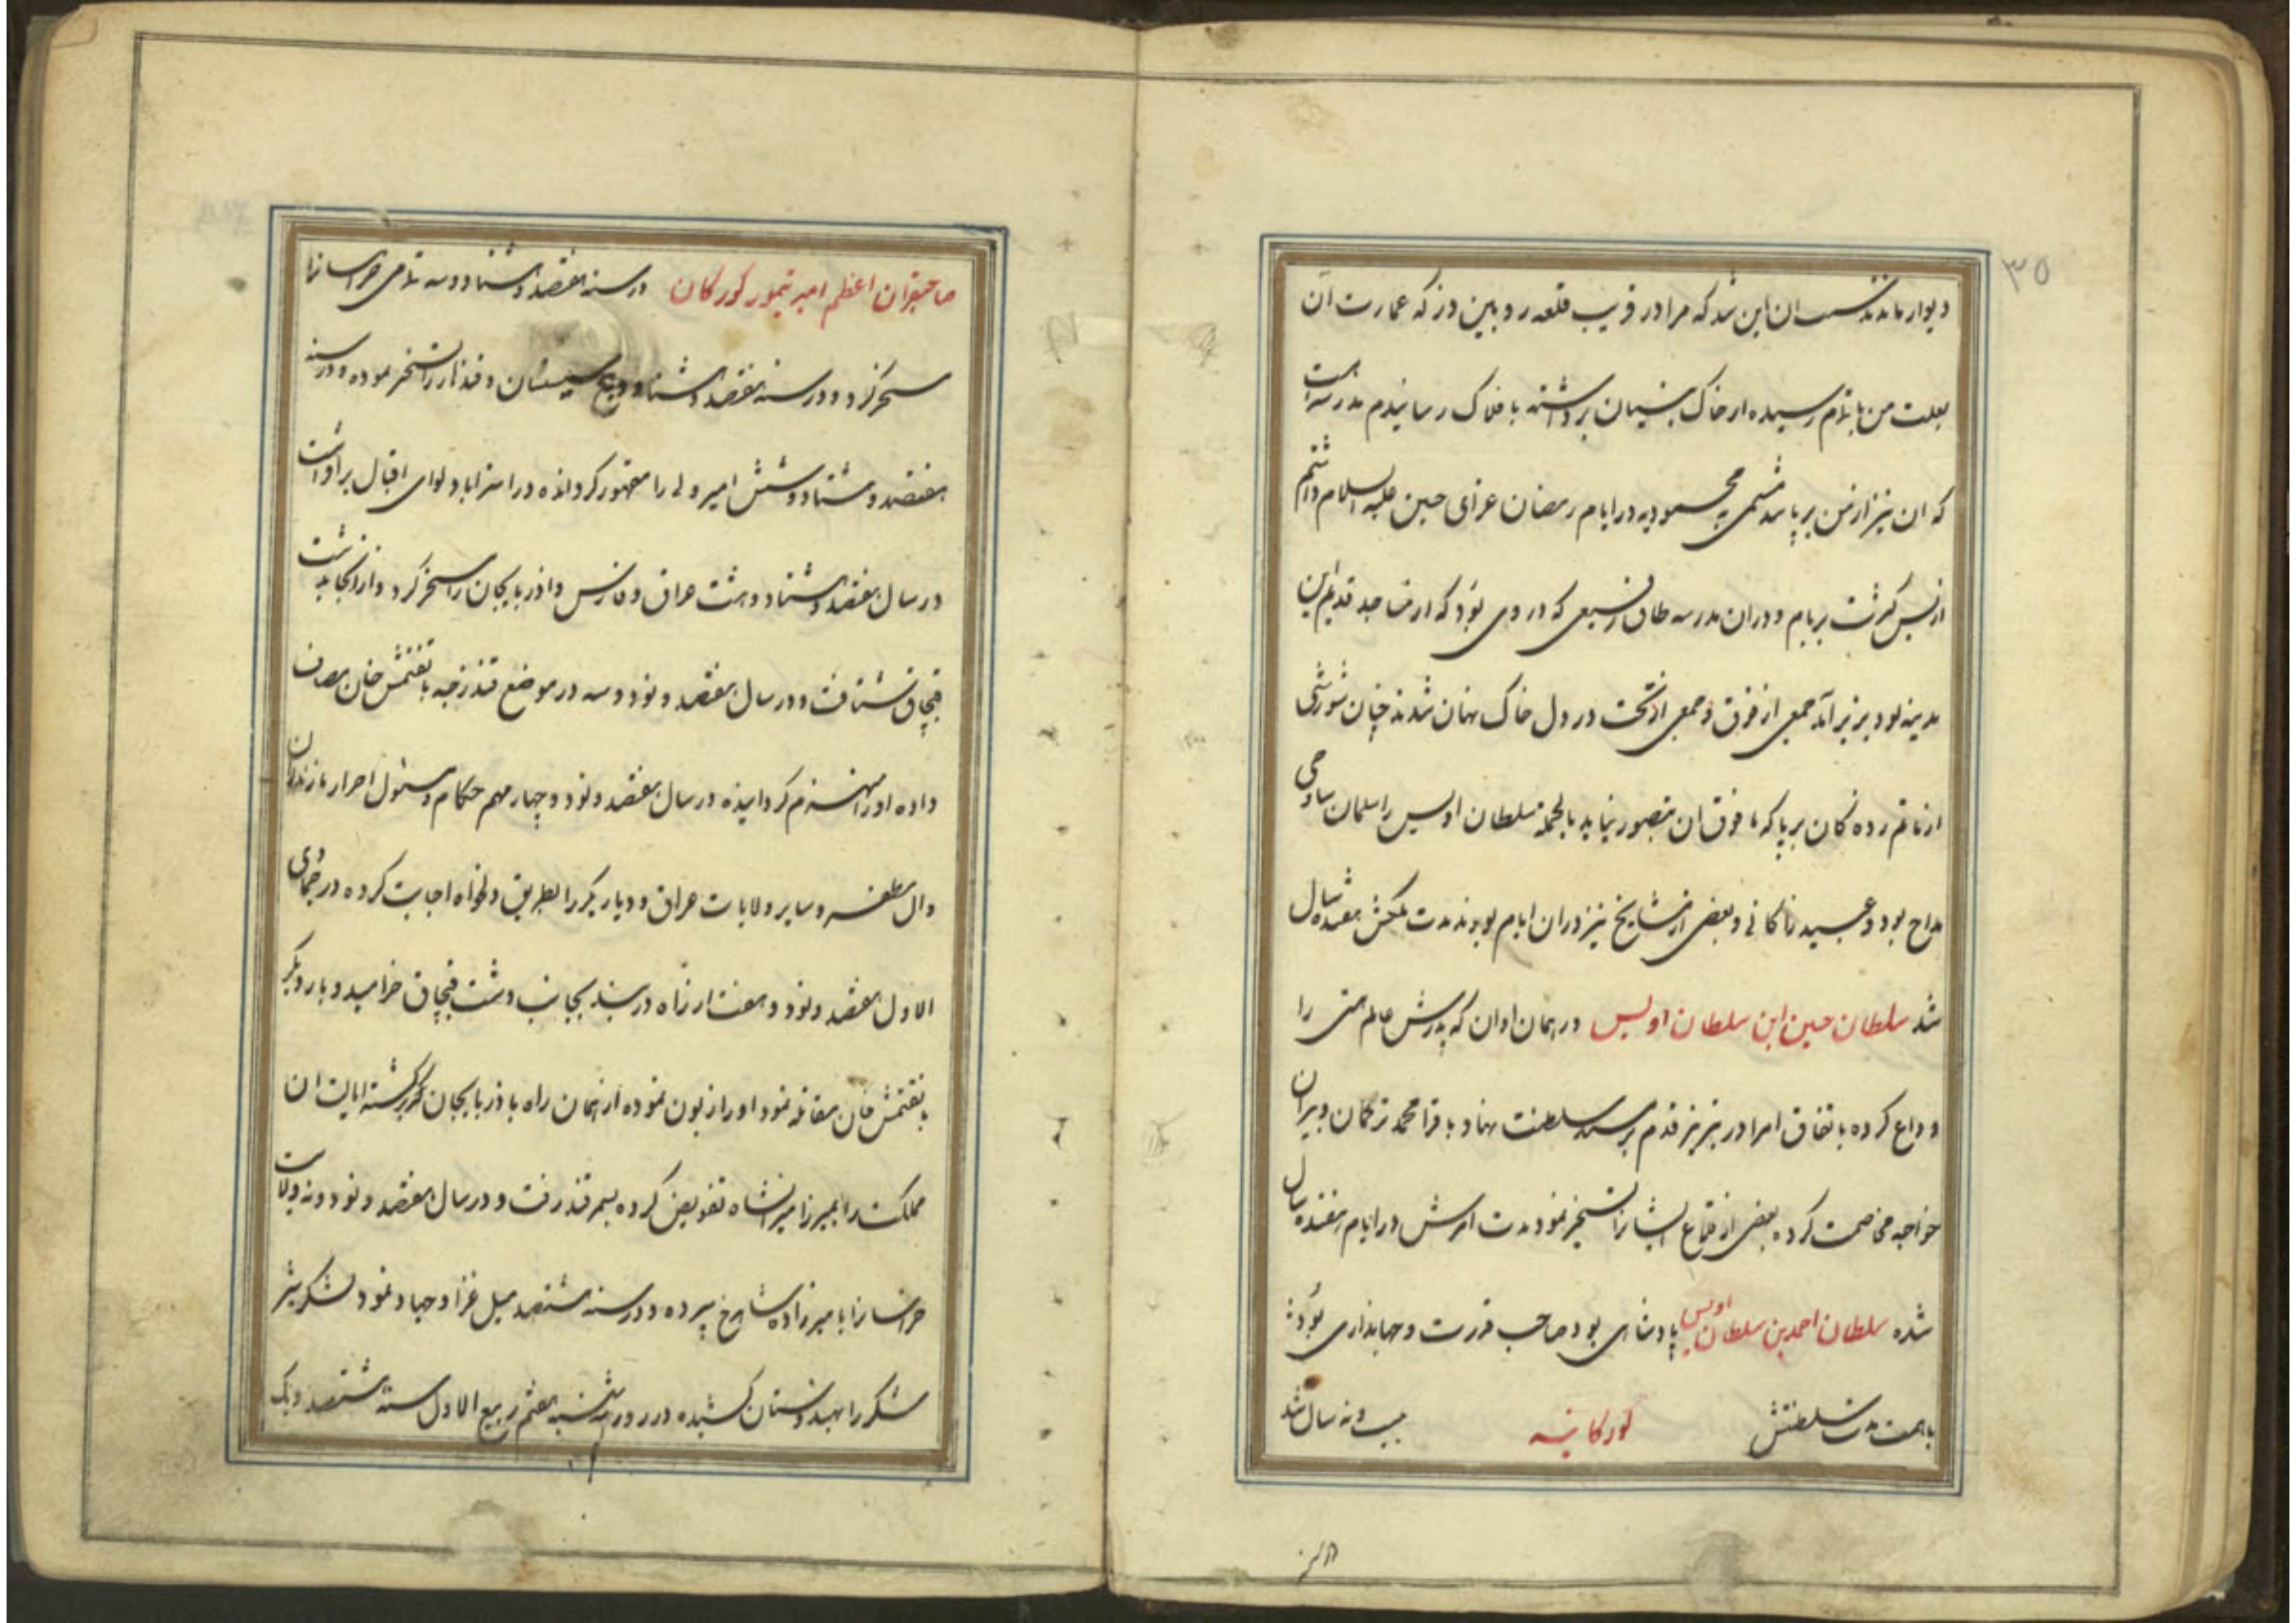 ۳۵
دیوار ماندند این شد که مرا در قریب قلعه رو بین دز که عمارت آن
بعلت من باتمام رسیده از خاک بنیان برداشته بافلاک رسانیدم مدرسه ایست
که ان نیز از من بر پا شد در ایام رمضان عزای حسین علیه السلام داشتم
از بس کثرت بر بام و دران مدرسه طاق که در وی بود که از مساجد قدیم این
مدینه بود بزیر آمد جمعی از فوق و جمعی از تحت در دل خاک نهان شدند چنان شورشی
از ماتم زده کان بر پا که ما فوق ان متصور نیاید بالجمله سلطان اویس را سلمان ساوجی
مداح بود و عبید زاکانی و بعضی از مشایخ نیز دران ایام بودند مدت ملکش هفده سال
شد سلطان حسین ابن سلطان اویس در همان اوان که پدرش عالم هستی را
وداع کرده باتفاق امرا در تبریز قدم بر مسند سلطنت نهاد با قرا محمد ترکمان و بیران
خواجه مخاصمت کرده بعضی از قلاع ایشانرا تسخیر نمود مدت امرش در ایام هفده سال
شده سلطان احمد بن سلطان اویس پادشاهی بود صاحب قدرت و جهانداری بود
باهمت مدت سلطنتش کورکانیه بیست و نه سال شد
صاحبقران اعظم امیر تیمور کورکان در سنه هفتصد و هشتاد و سه تمامی خراسانرا
مسخر کرد و در سنه هفتصد و هشتاد و پنج سیستان و قندهار را مسخر نموده و در سنه
هفتصد و هشتاد و شش امیر ولی را مقهور کردانده در استراباد لوای اقبال بر افراشت
در سال هفتصد و هشتاد و هشت عراق و فارس و اذربایجان را مسخر کرد و از انجا بدشت
قبچاق شتافت و در سال هفتصد و نود و سه در موضع قندزجه با تقتمش خان مصاف
داده او را منهزم کردانیده در سال هفتصد و نود و چهار مهم حکام مازندران
و ال مظفر و سایر ولایات عراق و دیار بکر را بطریق دلخواه اجابت کرده در جمادی
الاول هفتصد و نود و هفت از راه دربند بجانب دشت قبچاق خرامید و بار دیگر
با تقتمش خان مقاتله نمود او را زبون نموده از همان راه باذربایجان برگشته ایالت ان
مملکت را بمیرزا میرانشاه تفویض کرده بسمرقند رفت و در سال هفتصد و نود و نه ولایت
خراسانرا با میرزاده شاهرخ سپرده و در سنه هشتصد میل غزا و جهاد نمود
لشکر را بهندوستان کشیده در روز سه شنبه هفتم ربیع الاول سنه هشتصد و یک